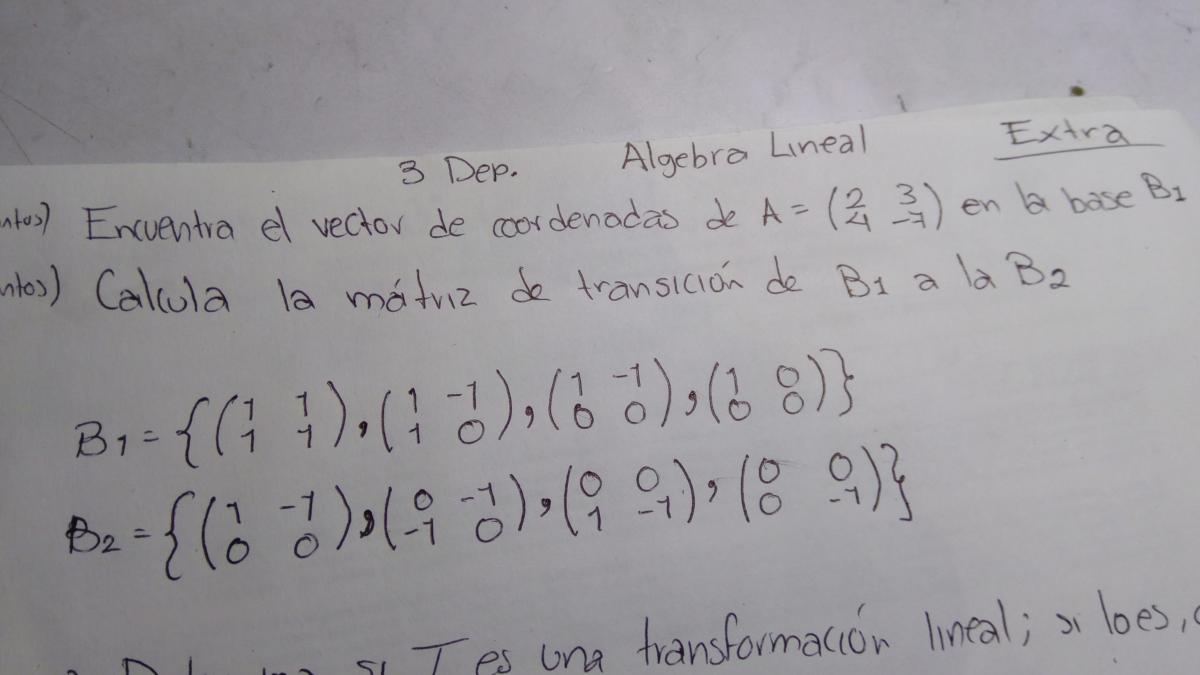 3 Dep. Algebra Lineal Extra
ntos) Encuentra el vector de coordenadas de A = (2 3 -4 -7) en la base B1
ntos) Calcula la mátriz de transición de B1 a la B2
B1 = {(1 1 1 1), (1 -1 1 0), (1 -1 0 0), (1 0 0 0)}
B2 = {(1 -1 0 0), (0 -1 -1 0), (0 0 1 -1), (0 0 0 -1)}
si T es una transformación lineal; si lo es,